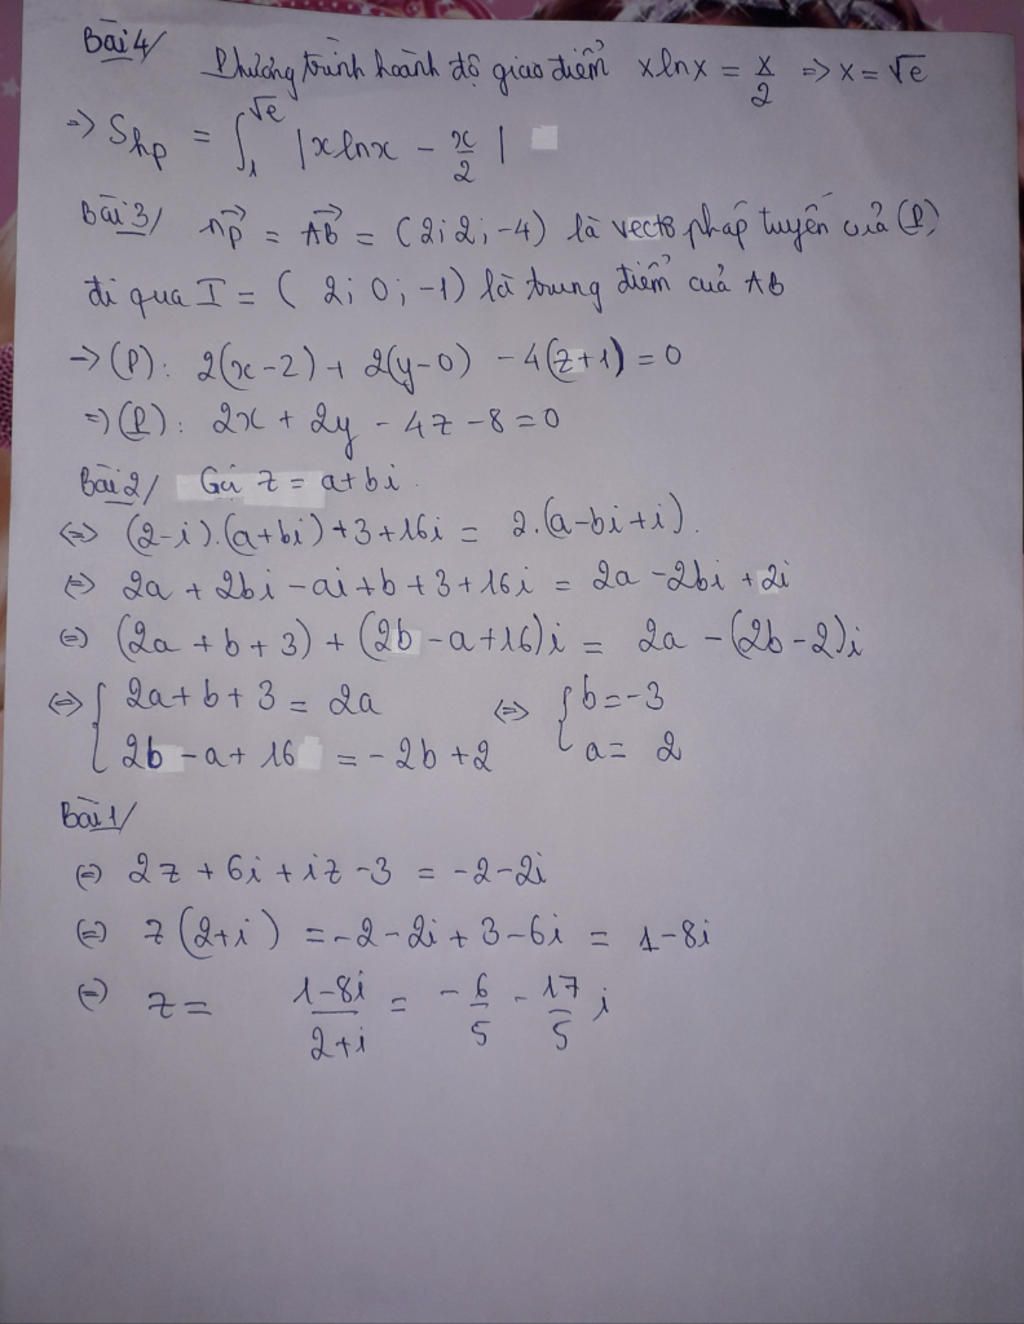 Bài 4/ Phương trình hoành độ giao điểm xlnx = x/2 => x = √e
=> Shp = ∫₁^√e |xlnx - x/2|
Bài 3/ nP→ = AB→ = (2; 2; -4) là vectơ pháp tuyến của (P)
đi qua I = ( 2; 0; -1) là trung điểm của AB
-> (P): 2(x-2) + 2(y-0) - 4(z+1) = 0
=> (P): 2x + 2y - 4z - 8 = 0
Bài 2/ Gọi z = a+bi.
<=> (2-i).(a+bi)+3+16i = 2.(a-bi+i).
<=> 2a + 2bi - ai + b + 3 + 16i = 2a - 2bi + 2i
<=> (2a + b + 3) + (2b - a + 16)i = 2a - (2b - 2)i
<=> { 2a + b + 3 = 2a <=> { b = -3
2b - a + 16 = -2b + 2 a = 2
Bài 1/
<=> 2z + 6i + iz - 3 = -2 - 2i
<=> z(2+i) = -2 - 2i + 3 - 6i = 1 - 8i
<=> z = 1-8i/2+i = -6/5 - 17/5 i